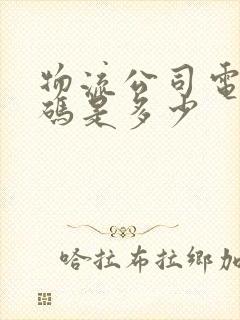 物流公司電
碼是多少
哈拉布拉鄉加